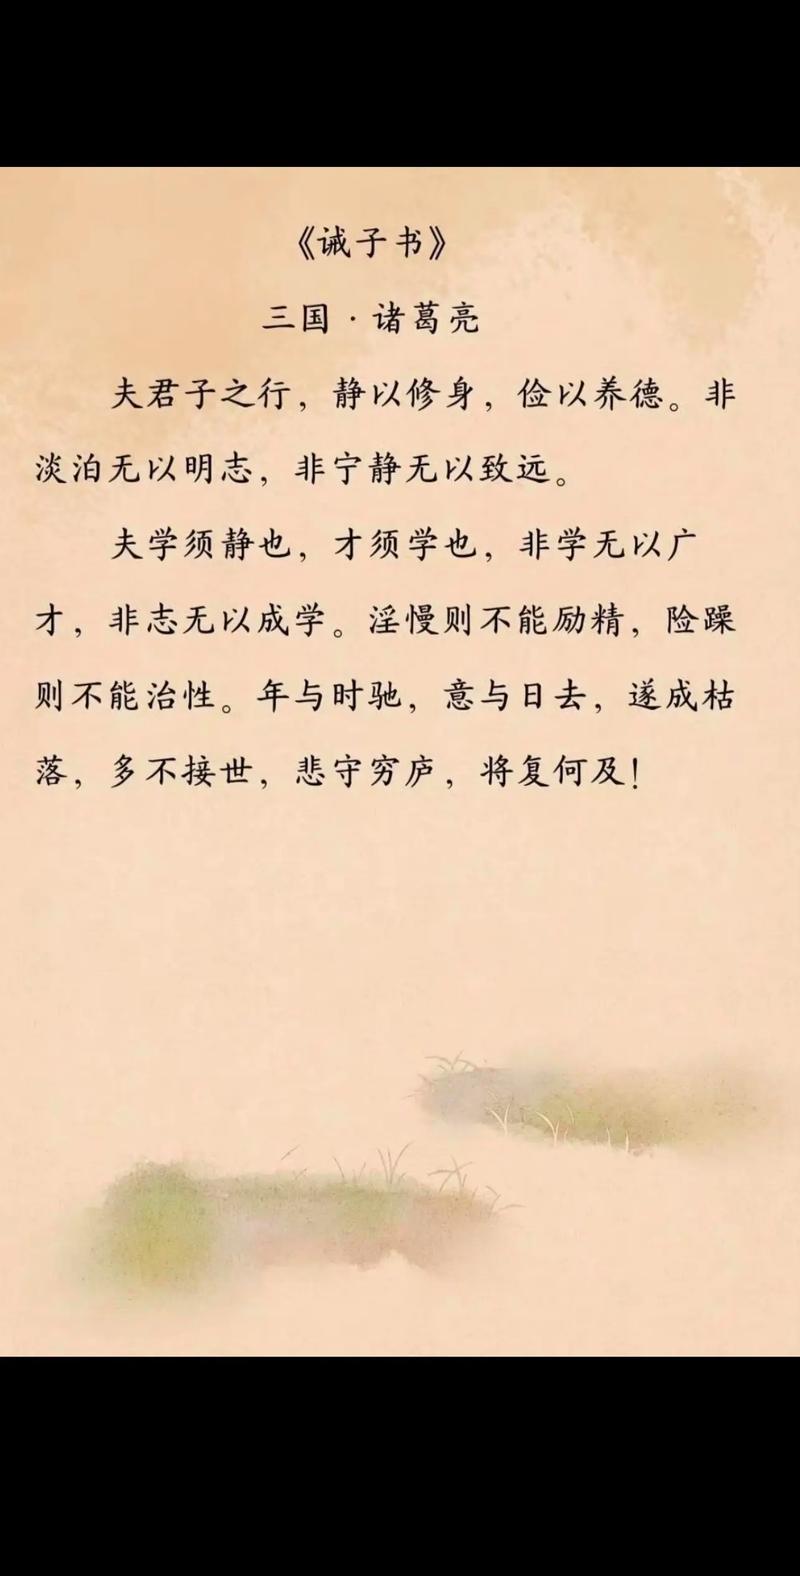 《诫子书》
三国·诸葛亮
夫君子之行，静以修身，俭以养德。非
淡泊无以明志，非宁静无以致远。
夫学须静也，才须学也，非学无以广
才，非志无以成学。淫慢则不能励精，险躁
则不能治性。年与时驰，意与日去，遂成枯
落，多不接世，悲守穷庐，将复何及！